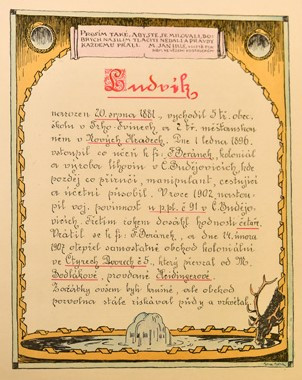 PROSÍM TAKÉ, ABYSTE SE MILOVALI, DO-
BRÝCH NÁSILÍM TLAČITI NEDALI A PRAVDY
KAŽDÉMU PŘÁLI. M. JAN HUS
Ludvík
narozen 20. srpna 1881, vychodil 5 tř. obec.
školu v Trho-Svinech, a 2 tř. měšťanskou
něm. v Nových Hradech. Dne 1 ledna 1896,
vstoupil co učeň k f. F. Beránek, koloniál
a výroba lihovin v Č. Budějovicích, kde
později co příručí, manipulant, cestující
a účetní působil. V roce 1902 nastou-
pil voj. povinnost u p.pl. č 91 v Č. Budějo-
vicích. Třetím rokem dosáhl hodnosti četaře.
Vrátil se k f. F. Beránek, a dne 14. února
1907 otevřel samostatně obchod koloniální
ve Čtyrech Dvorech č 5, který převzal od M.
Bodlákové, provdané Heidingerové.
Začátky ovšem byly krušné, ale obchod
pozvolna stále získával půdy a vzkvétal.